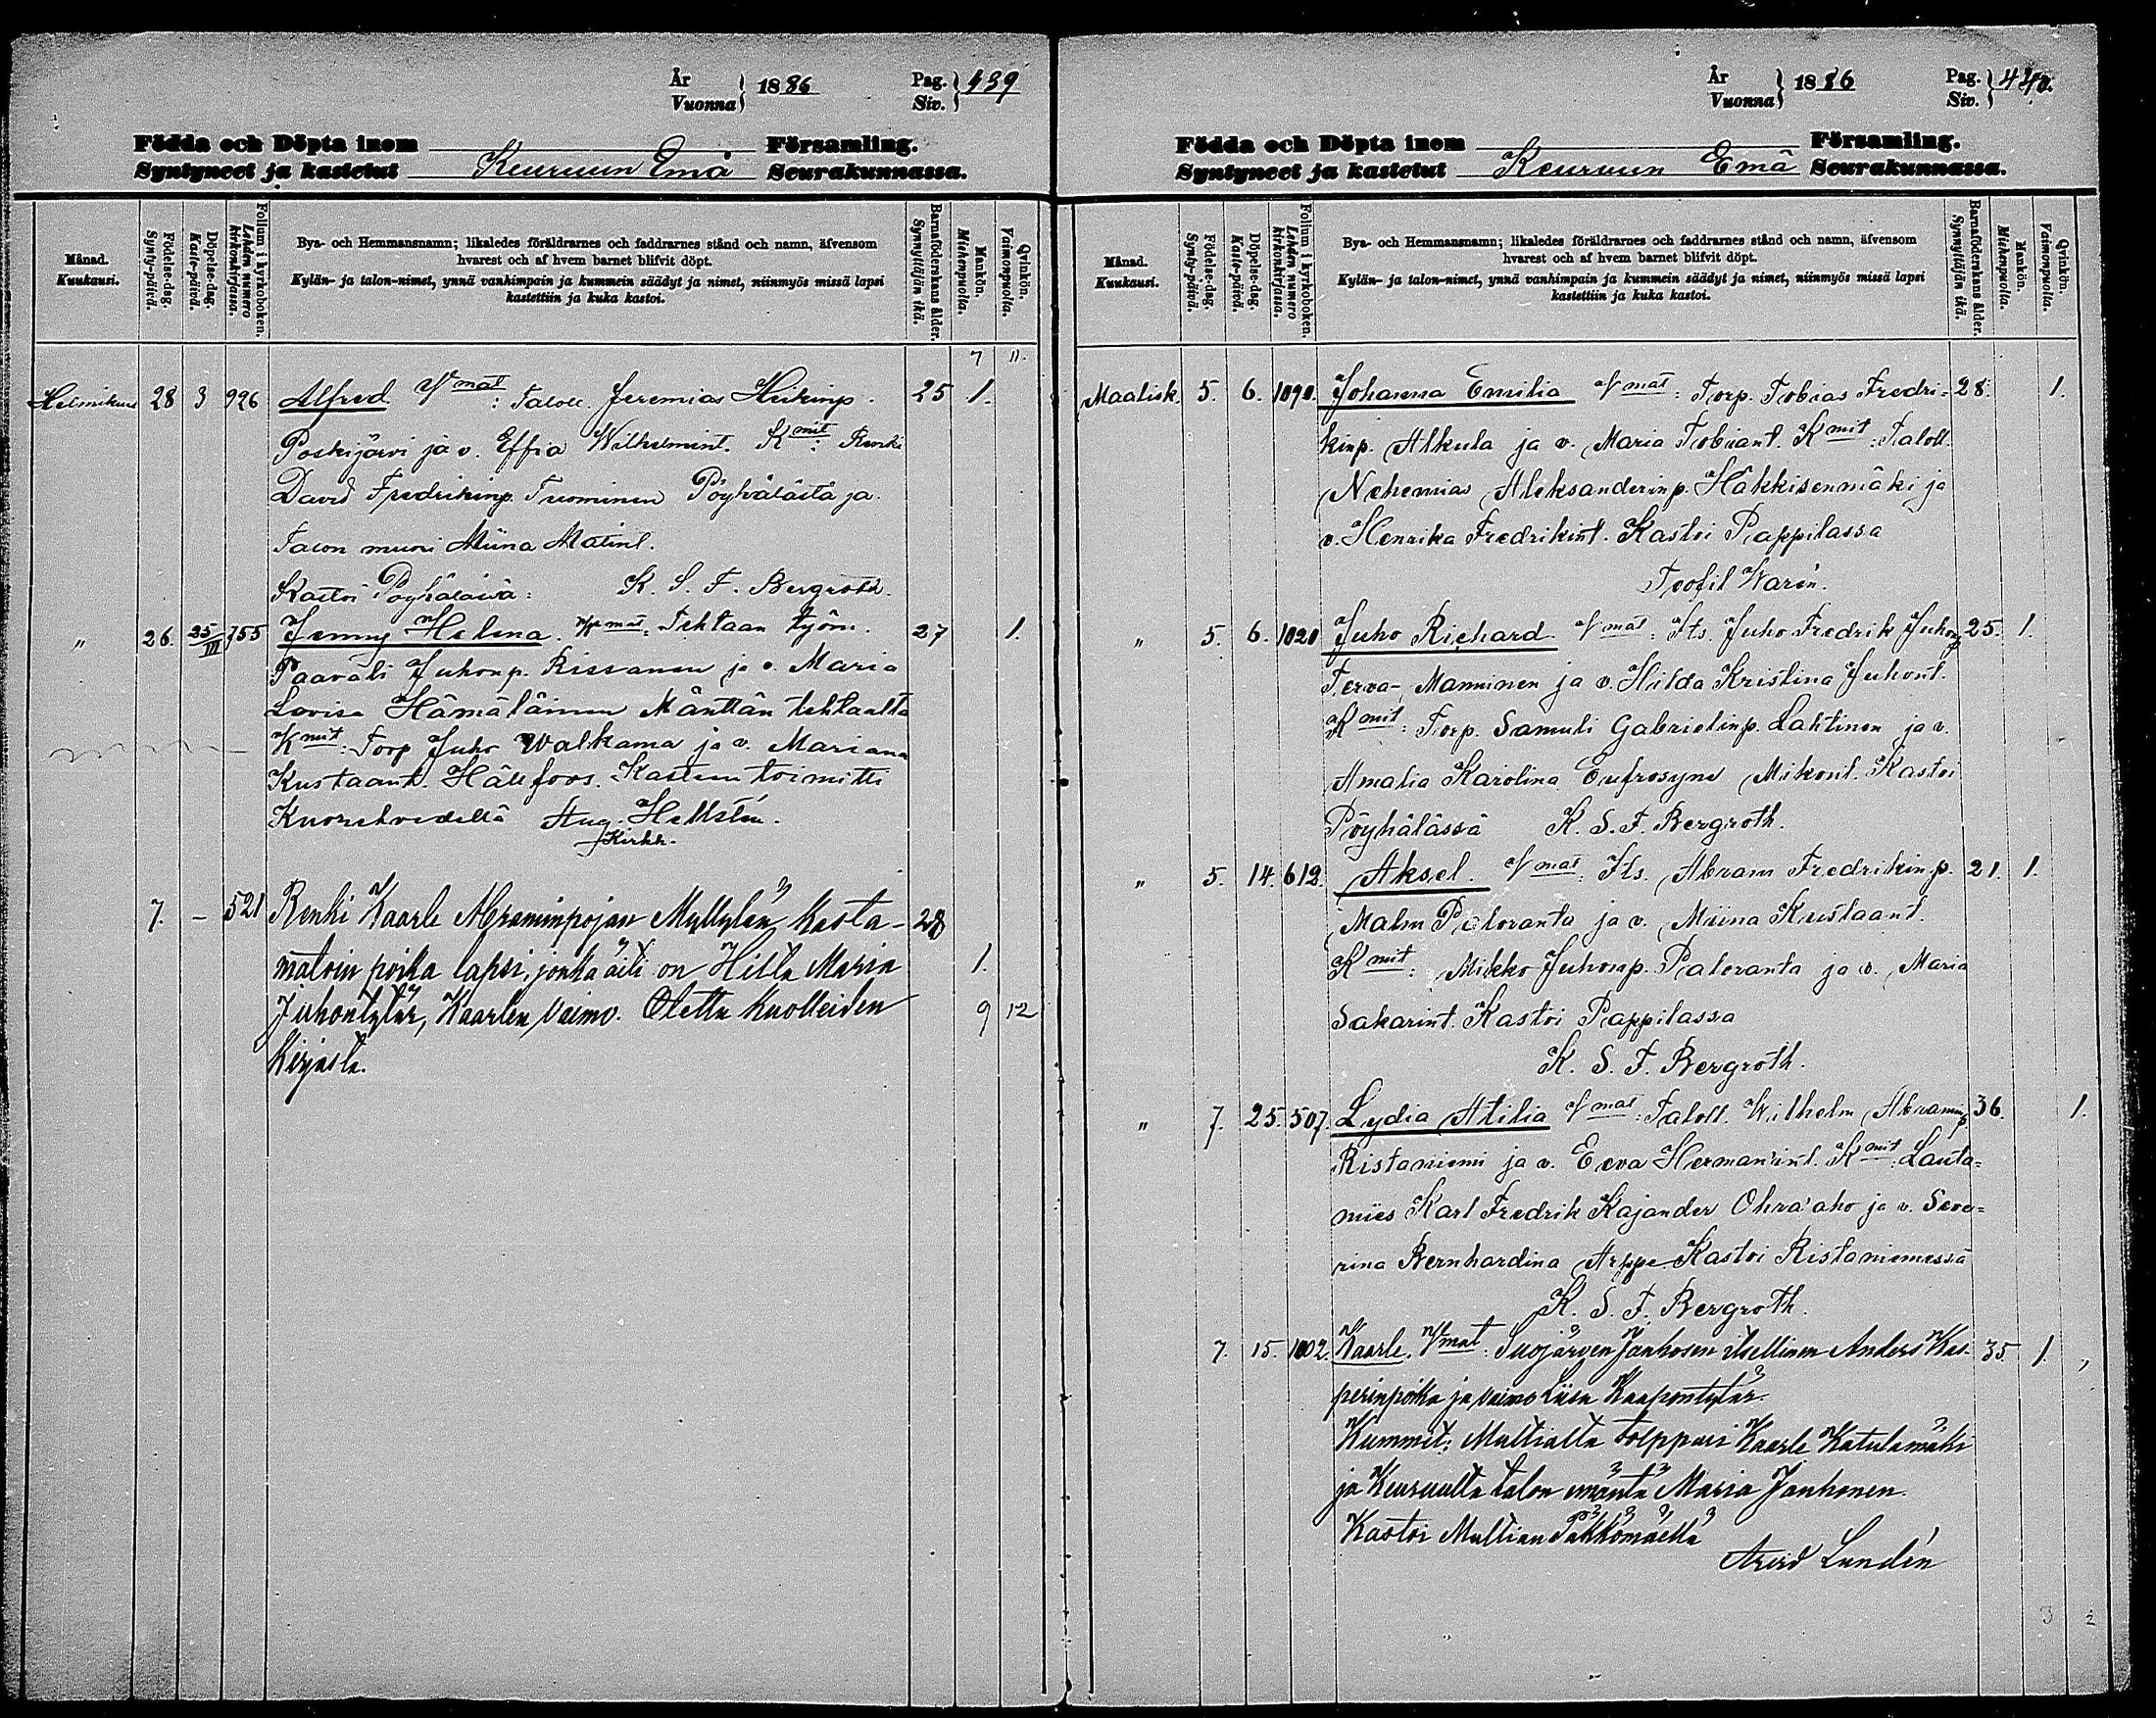 År
Vuonna } 1886
Pag.
Siv. } 439
Födda och Döpta inom Församling.
Syntyneet ja kastetut Keuruun Emä Seurakunnassa.
Månad.
Kuukausi.
Födelse-dag.
Synty-päivä.
Döpelse-dag.
Kaste-päivä.
Folium i kyrkoboken.
Lehden numero kirkonkirjassa.
Bya- och Hemmansnamn; likaledes föräldrarnes och faddrarnes stånd och namn, äfvensom
hvarest och af hvem barnet blifvit döpt.
Kylän- ja talon-nimet, ynnä vanhimpain ja kummein säädyt ja nimet, niinmyös missä lapsi
kastettiin ja kuka kastoi.
Barnaföderskans ålder.
Synnyttäjän ikä.
Mankön.
Miehenpuolia.
Qvinkön.
Vaimonpuolia.
7 11.
Helmikuu 28 3 926 Alfred. Vmat: Taloll. Jeremias Heikinp. 25 1.
Poskijärvi ja v. Effia Wilhelmint. Kmit: Renki
David Fredrikinp. Tuominen Pöyhölästä ja
Talon muori Miina Matint.
Kastoi Pöyhölässä: K. S. F. Bergroth.
" 26. 25/III 755 Jenny Helena. Vmat: Tehtaan työm. 27 1.
Paavali Juhonp. Rissanen ja v. Maria
Lovisa Hämäläinen Mänttän tehtaalta
Kmit: Torp Juho Walkama ja v. Mariana
Kustaant. Hällfoos. Kasteen toimitti
Kuorehvedellä Aug. Hellstén.
Kirkh.
7. - 521 Renki Kaarle Abraminpojan Myllylän kasta- 28
matoin poika lapsi, jonka äiti on Hilta Maria 1.
Juhontytär, Kaarlen vaimo. Otettu kuolleiden 9 12
kirjasta.
År
Vuonna } 1886
Pag.
Siv. } 440.
Födda och Döpta inom Församling.
Syntyneet ja kastetut Keuruun Emä Seurakunnassa.
Månad.
Kuukausi.
Födelse-dag.
Synty-päivä.
Döpelse-dag.
Kaste-päivä.
Folium i kyrkoboken.
Lehden numero kirkonkirjassa.
Bya- och Hemmansnamn; likaledes föräldrarnes och faddrarnes stånd och namn, äfvensom
hvarest och af hvem barnet blifvit döpt.
Kylän- ja talon-nimet, ynnä vanhimpain ja kummein säädyt ja nimet, niinmyös missä lapsi
kastettiin ja kuka kastoi.
Barnaföderskans ålder.
Synnyttäjän ikä.
Mankön.
Miehenpuolia.
Qvinkön.
Vaimonpuolia.
Maalisk. 5. 6. 1090. Johanna Emilia Vmat: Torp. Tobias Fredri= 28. 1.
kinp. Alkula ja v. Maria Tobiant. Kmit: Taloll.
Nehemias Aleksanderinp. Häkkisenmäki ja
v. Henrika Fredrikint. Kastoi Pappilassa
Teofil Warén.
" 5. 6. 1020 Juho Richard. Vmat: Its. Juho Fredrik Juhonp 25. 1.
Terva-Manninen ja v. Hilda Kristina Juhont.
Kmit: Torp. Samuli Gabrielinp. Lahtinen ja v.
Amalia Karolina Eufrosyne Mikont. Kastoi
Pöyhölässä K. S. F. Bergroth.
" 5. 14. 612. Aksel. Vmat: Its. Abram Fredrikinp. 21. 1.
Malm Paloranta ja v. Miina Kustaant.
Kmit: Mikko Juhonp. Paloranta ja v. Maria
Sakarint. Kastoi Pappilassa
K. S. F. Bergroth.
" 7. 25. 507. Lydia Atilia Vmat: Taloll. Wilhelm Abramp 36. 1.
Ristaniemi ja v. Eeva Hermanint. Kmit: Lauta=
mies Karl Fredrik Kajander Ohra'aho ja v. Seve=
rina Bernhardina Arppe Kastoi Ristaniemessä
K. S. F. Bergroth.
7. 15. 1002. Kaarle. Vmat: Suojärven Janhosen itsellinen Anders Kas- 35. 1.
perinpoika ja vaimo Liisa Kaapontytär.
Kummit: Multialta torppari Kaarle Katulamäki
ja Keuruulta talon emäntä Maria Janhonen.
Kastoi Multian Päkkömäellä
Arvid Lundén
3 2